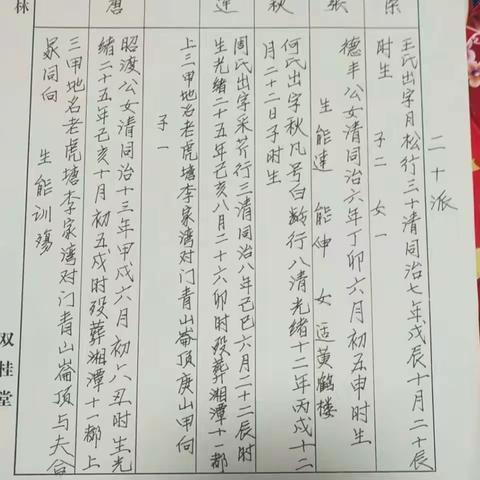 二十派
王氏出字月松行三十清同治七年戊辰十月二十辰
时生
子二 女一
德丰公女清同治六年丁卯六月初五申时生
生能连 能伸 女适黄鹤楼
何氏出字秋凡号白龄行八清光绪十二年丙戌十二
月二十二日子时生
周氏出字采芹行三清同治八年己巳六月二十二辰时
生光绪二十五年己亥八月二十六卯时殁葬湘潭十一都
上三甲地名老虎塘李家湾对门青山崙顶庚山甲向
子一
昭渡公女清同治十三年甲戌六月初八丑时生光
绪二十五年己亥十月初五戌时殁葬湘潭十一都上
三甲地名老虎塘李家湾对门青山崙顶与夫合
冢同向
生能训殇
张
秋
莲
唐
林
双桂堂